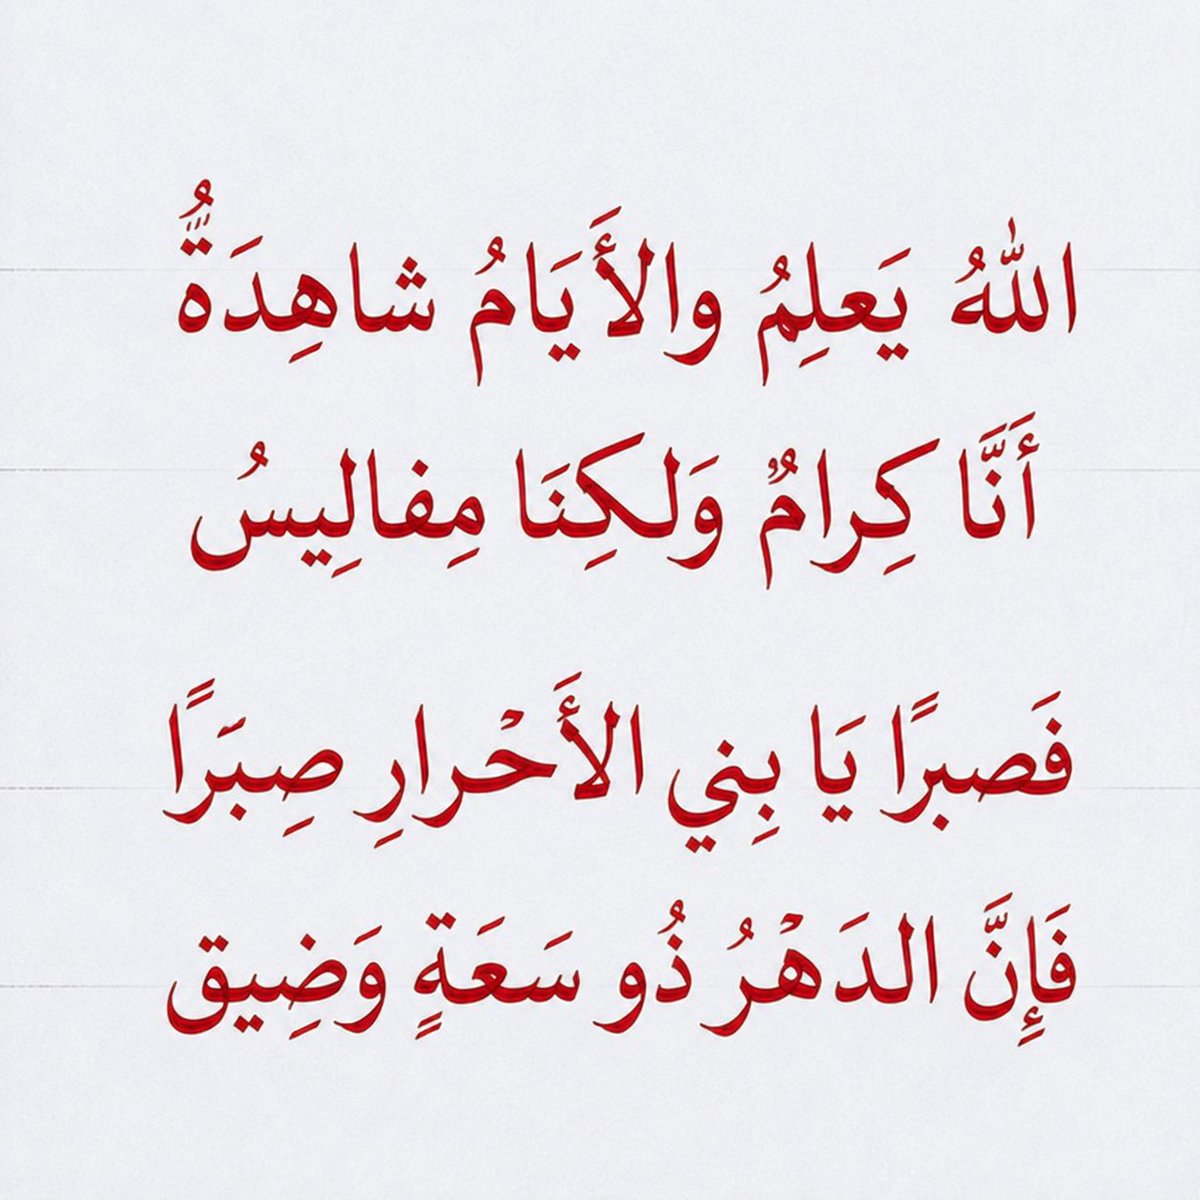 اللهُ يَعلِمُ والأَيَامُ شاهِدَةٌ
أَنَّا كِرامٌ وَلكِنَا مِفالِيسُ
فَصبرًا يَا بِني الأَحْرارِ صِبَرًا
فَإِنَّ الدَهْرُ ذُو سَعَةٍ وَضِيق